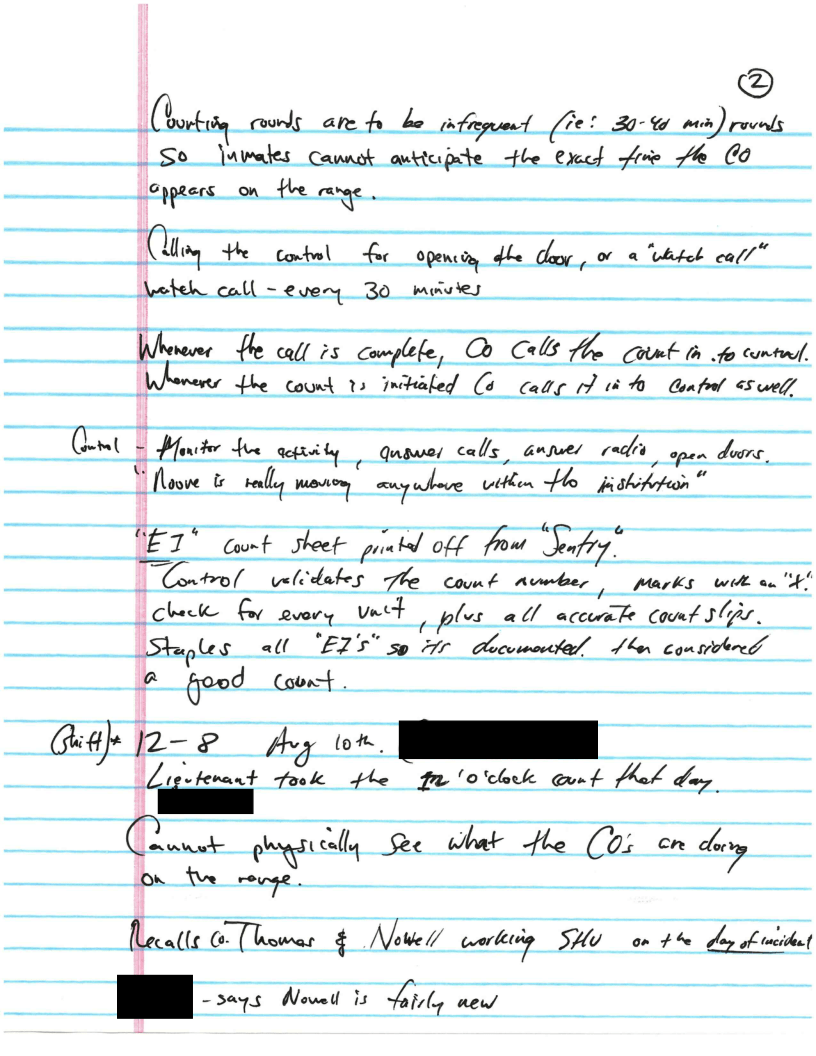 ②
Counting rounds are to be infrequent (ie: 30-40 min) rounds
so inmates cannot anticipate the exact time the CO
appears on the range.
Calling the control for opening the door, or a "watch call"
watch call - every 30 minutes
Whenever the call is complete, CO calls the count in to control.
Whenever the count is initiated Co calls it in to Control as well.
Control - Monitor the activity, answer calls, answer radio, open doors.
"Noone is really moving anywhere within the institution"
"EI" count sheet printed off from "Sentry".
Control validates the count number, marks with an "X".
check for every unit, plus all accurate count slips.
Staples all "EI's" so its documented. then considered
a good count.
(Shift)* 12-8 Aug 10th.
Lieutenant took the o'clock count that day.
Cannot physically see what the CO's are doing
on the range.
Recalls Co. Thomas & Nowell working SHU on the day of incident
- says Nowell is fairly new